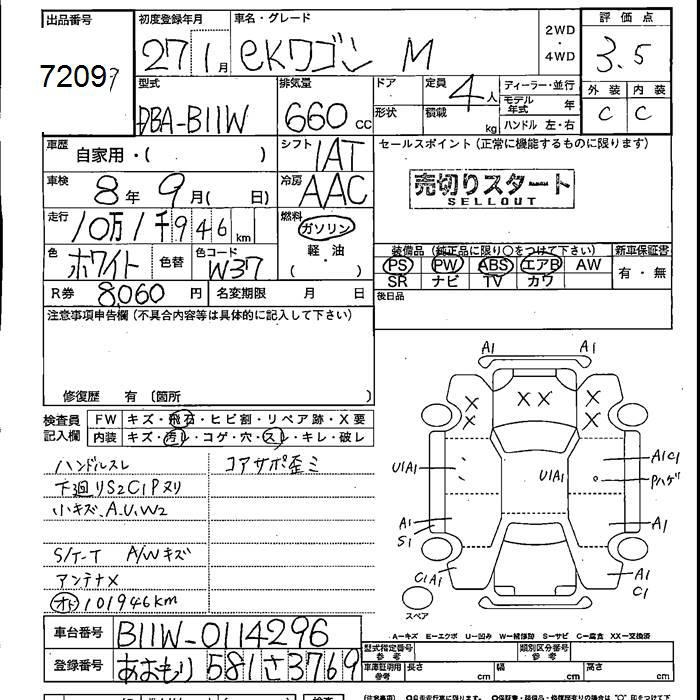 出品番号 初度登録年月 車名・グレード 2WD ・ 4WD 評価点
7209 27 1月 eKワゴン M 3.5
型式 排気量 ドア 定員 4人 ディーラー・並行 外装 内装
DBA-B11W 660cc 形状 積載 kg モデル年式 年 C C
ハンドル 左・右
車歴 自家用・( ) シフト IAT セールスポイント(正常に機能するものに限ります)
車検 8年 9月( 日) 冷房 AAC 売切りスタート
SELLOUT
走行 10万1千946km 燃料 ガソリン
軽・油
( )
色 ホワイト 色替 色コード W37 装備品(純正品に限り○をつけて下さい) 新車保証書
PS PW ABS エアB AW 有・無
SR ナビ TV カワ
R券 8,060円 名変期限 月 日 後日品
注意事項申告欄(不具合内容等は具体的に記入して下さい)
修復歴 有 (箇所 )
検査員記入欄 FW キズ・飛石・ヒビ割・リペア跡・X要
内装 キズ・汚レ・コゲ・穴・スレ・キレ・破レ
ハンドルスレ コアサポ歪ミ
下廻りS2C1Pヌリ
小キズ、A.U.W2
S/T-T A/Wキズ
アンテナX
オド 101946km
A1 A1
X X XX X X
U1A1 U1A1 A1C1
Pハゲ
A1 A1
S1
C1A1 A1
C1
スペア
A-キズ E-エクボ U-凹み W-補修跡 S-サビ C-腐食 XX-交換済
車台番号 B11W-0114296
登録番号 あおもり 581 さ 3769
型式指定番号 参考 類別区分番号 参考
車庫証明用 参考 長さ cm 幅 cm 高さ cm